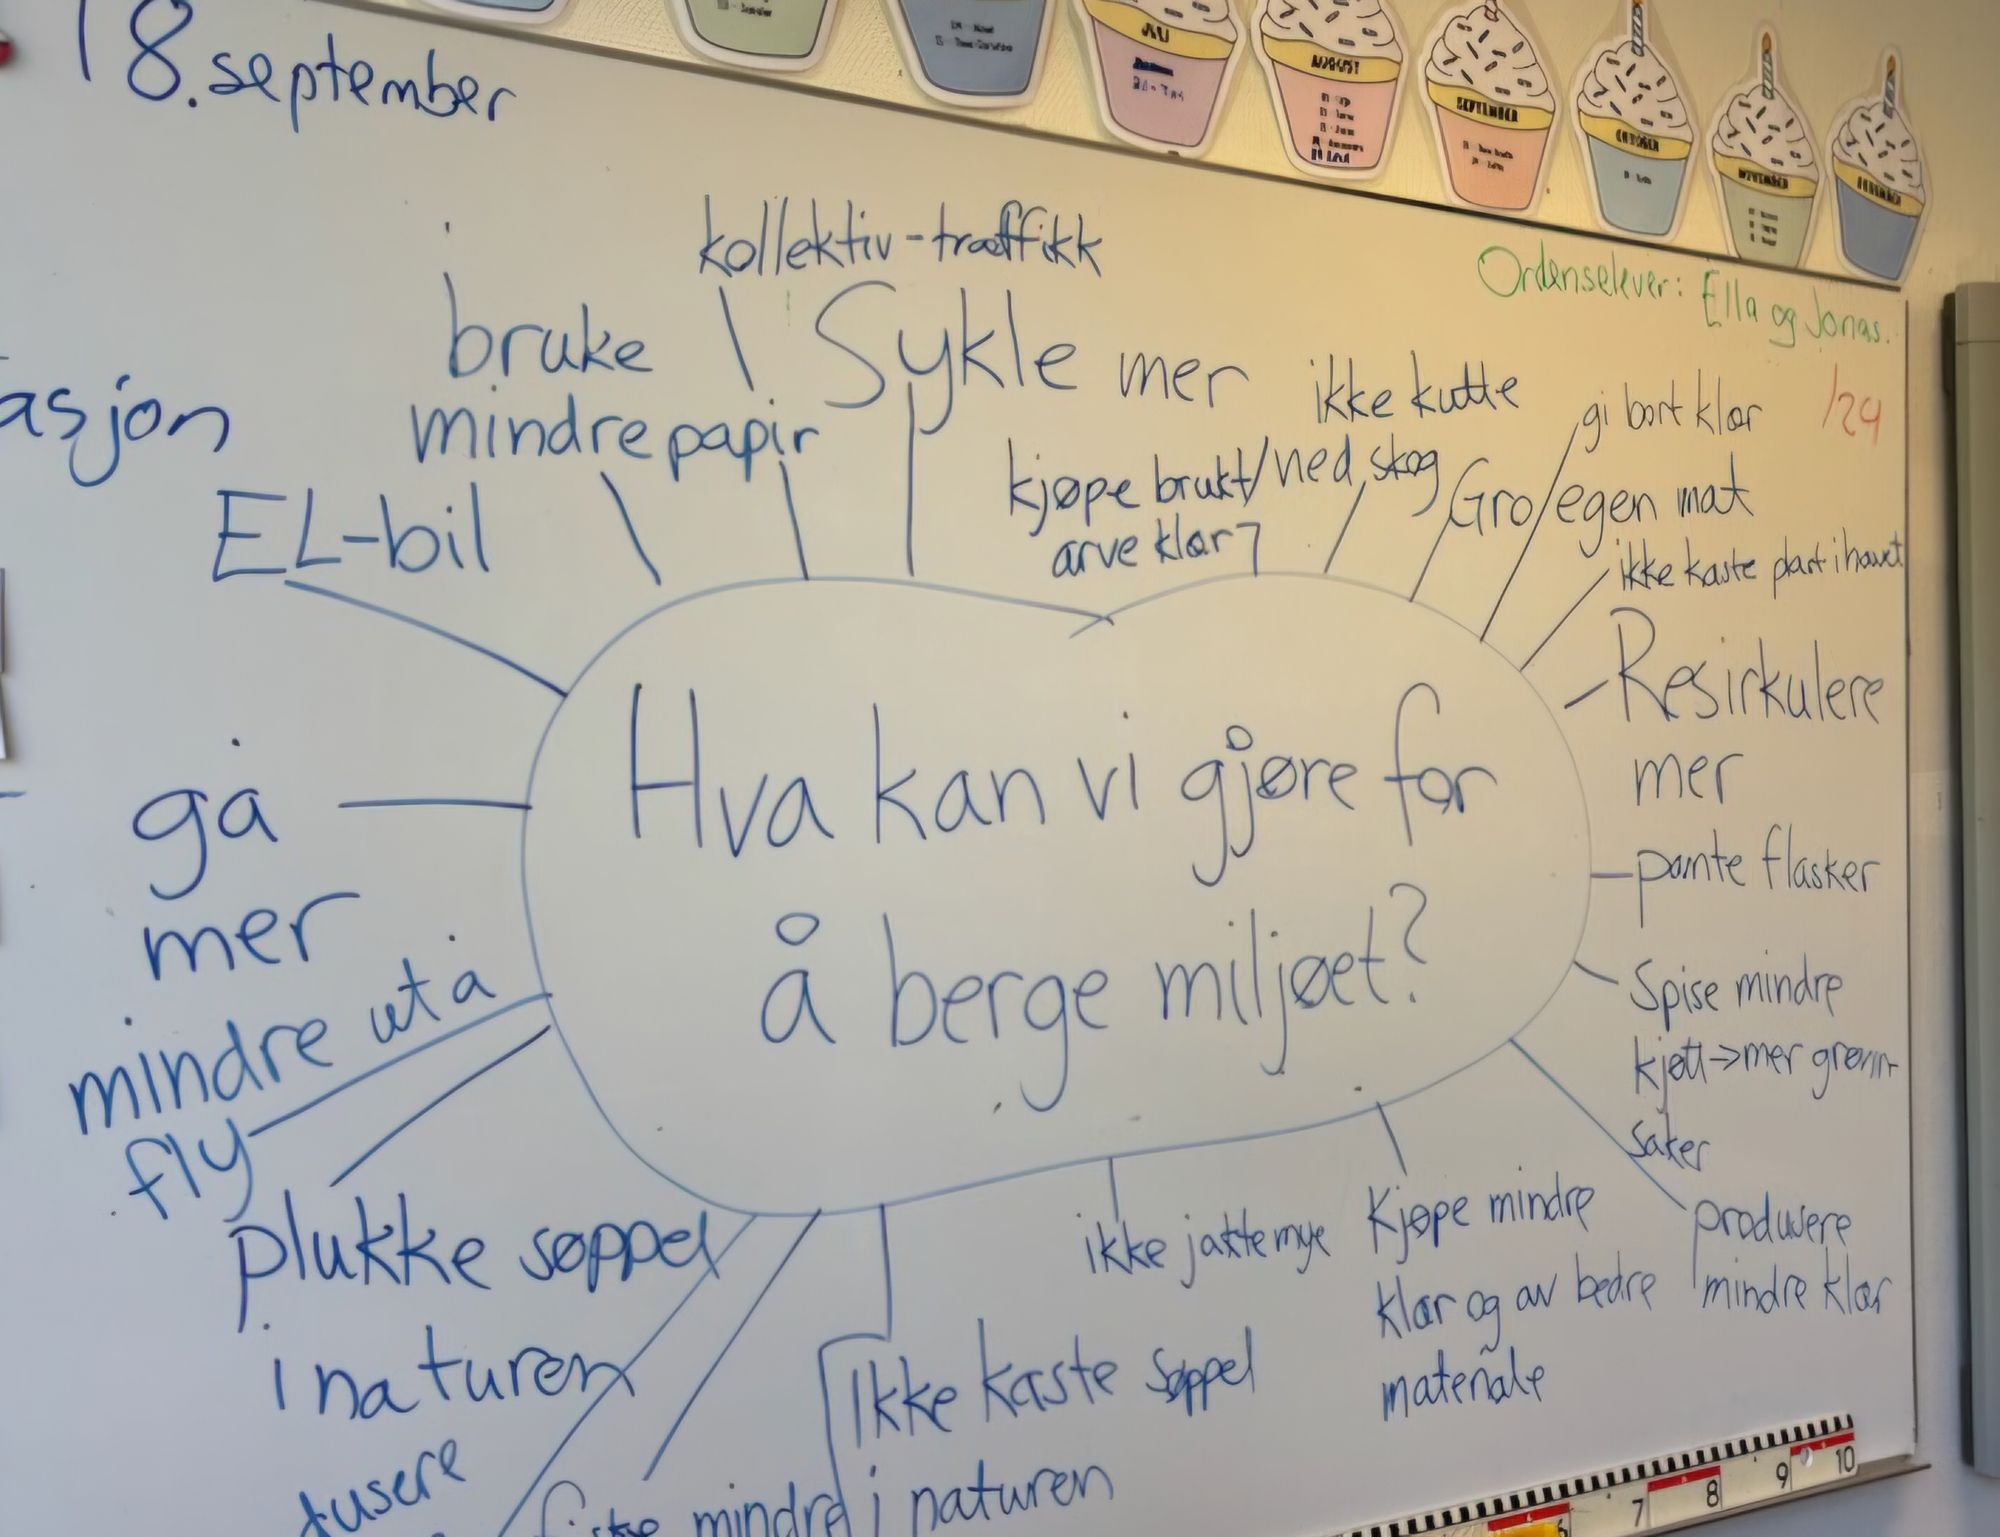 18. september
JULI
AUGUST
SEPTEMBER
OKTOBER
NOVEMBER
Ordenselever: Ella og Jonas.
/29
asjon
kollektiv-traffikk
bruke
mindre papir
Sykle mer
EL-bil
kjøpe brukt/
arve klær
ikke kutte
ned skog
gi bort klær
Gro egen mat
ikke kaste plast i havet
Resirkulere
mer
pante flasker
Spise mindre
kjøtt->mer grønn-
saker
produsere
mindre klær
Kjøpe mindre
klær og av bedre
materiale
ikke jakte mye
Ikke kaste søppel
i naturen
fiske mindre
Hva kan vi gjøre for
å berge miljøet?
gå
mer
mindre ut å
fly
plukke søppel
i naturen
usere
7 8 9 10